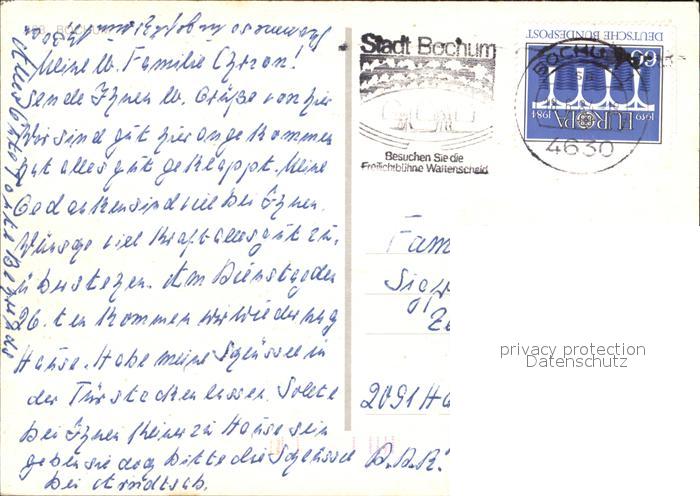 Meine lb. Familie
Sende Ihnen lb. Grüße von hier
Wir sind gut hier angekommen
hat alles gut geklappt. Meine
Gedanken sind viel bei Ihnen.
Wünsche viel Kraft alles gut zu
überstehen. Am Dienstag den
26. ten kommen wir wieder nach
Hause. Habe meine Schlüssel in
der Tür stecken lassen. Sollte
bei Ihnen keiner zu Hause sein
geben sie doch bitte die Schlüssel
bei
Stadt Bochum
Besuchen Sie die
Freilichtbühne Wattenscheid
DEUTSCHE BUNDESPOST
60
1949 1984
EUROPA
BOCHUM
4630
Fam
2091 Ha
B.R.D.
privacy protection
Datenschutz